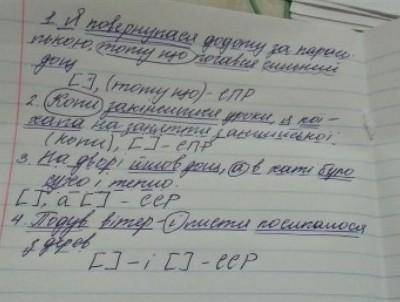 1. Я повернулася додому за парасо-
лькою, тому що почався сильний
дощ
[ ], (тому що) - СПР
2. Коли закінчилися уроки, я пої-
хала на заняття з англійської.
(коли), [ ] - СПР
3. На дворі йшов дощ, а в хаті було
сухо і тепло.
[ ], а [ ] - ССР
4. Подув вітер - і листя посипалося
з дерев
[ ] - і [ ] - ССР